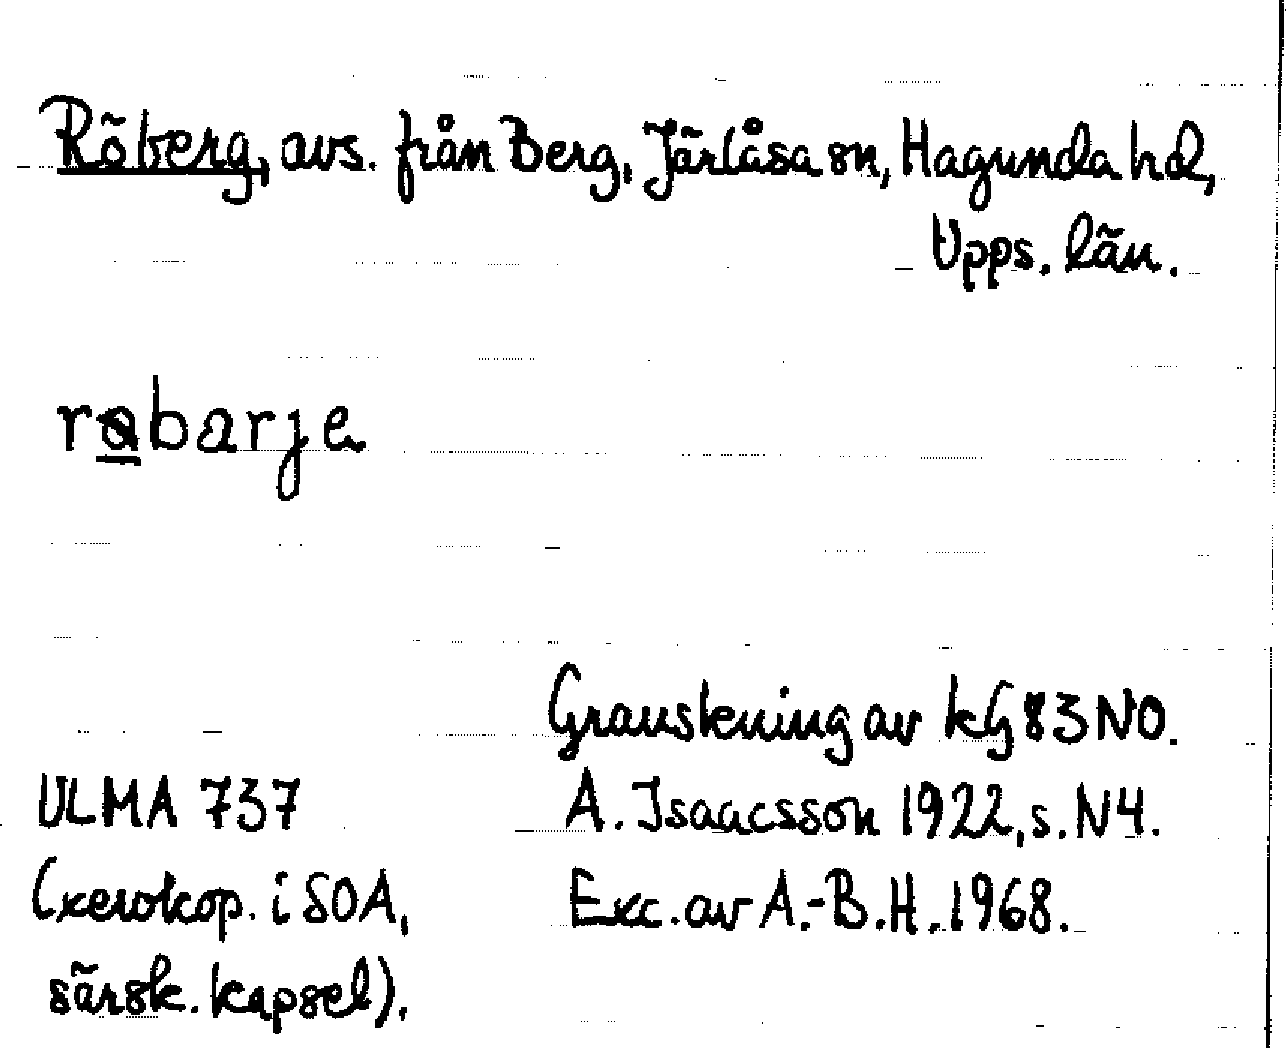 Röberg, avs. från Berg, Järlåsa sn, Hagunda hd,
Upps. län.
røbarje
Granskning av kG 83 NO.
ULMA 737
A. Isaacsson 1922, s. N4.
(xerokop. i SOA,
Exc. av A.-B.H. 1968.
särsk. kapsel).